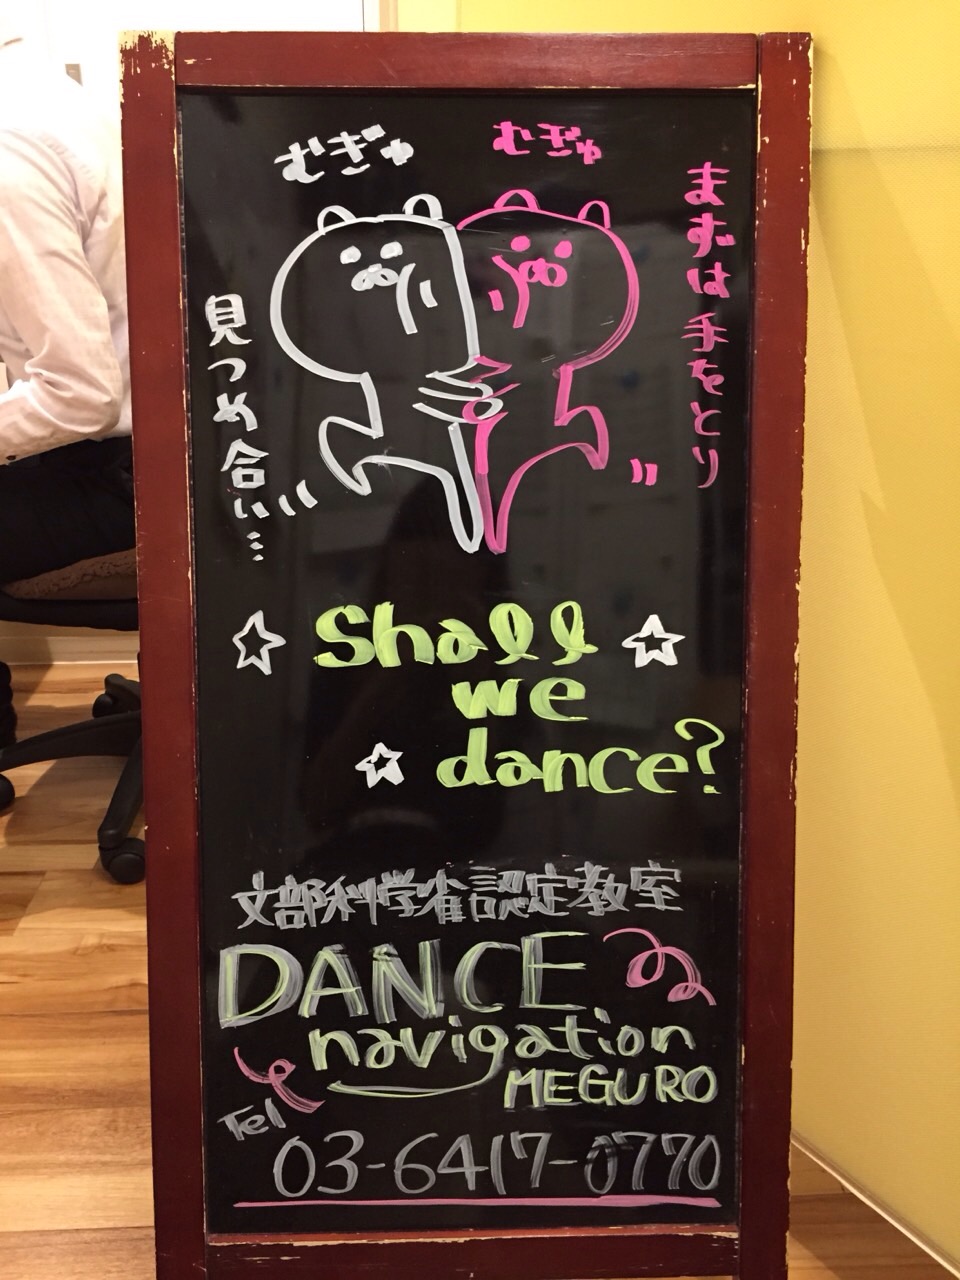 むぎゅ
むぎゅ
まずは 手をとり
見つめ合い…
Shall
we
dance?
文部科学省認定教室
DANCE
navigation
MEGURO
Tel
03-6417-0770